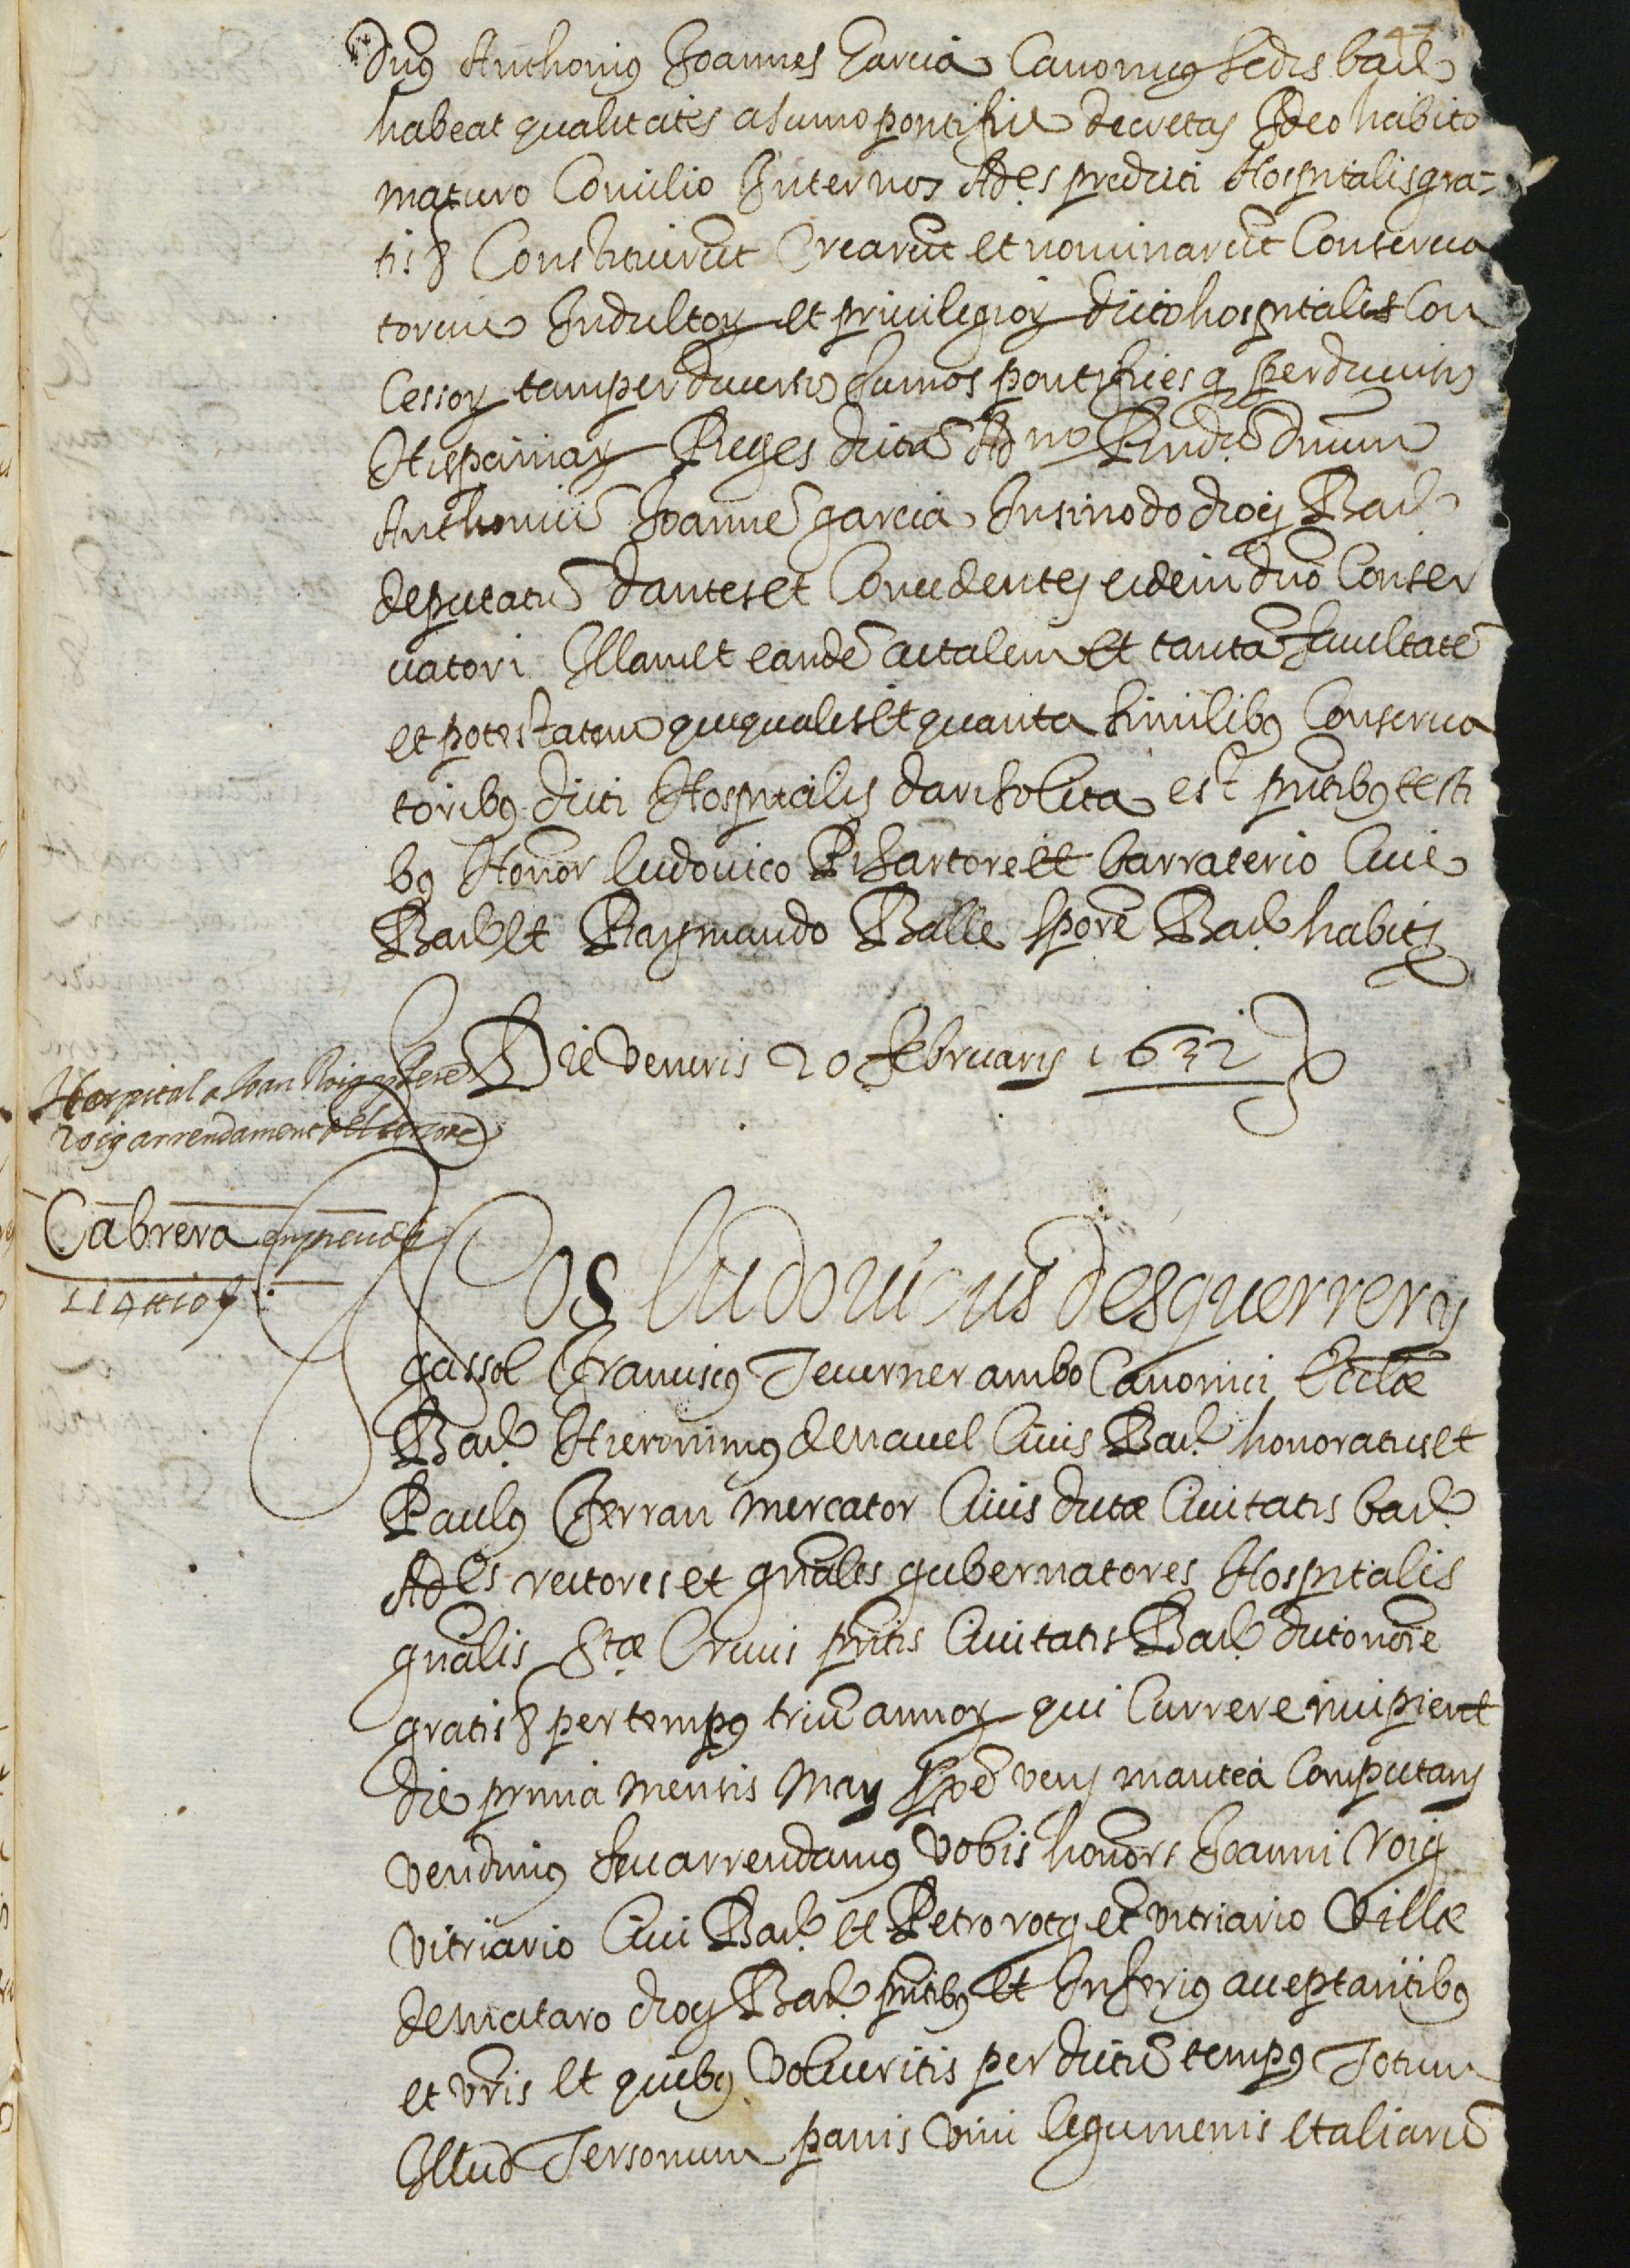 47
Dns Anthonius Joannes Garcia Canonicus sedis barⁿ
habeat qualitates a sumo pontifice decretas Ideo habito
maturo Concilio Inter nos Ad.es predicti Hospitalis gra=
tis & Constituerūt Crearūt et nominarūt Conserva
torem Indultor et privilegior dicto hospitalis Con
cessor tam per diversos sumos pontifices q̄ per diversos
Hispaniar Reges dictū Ad no Rindū dnum
Anthoniū Joannē garcia In sinodo diocis Barⁿ
deputatū dantes et Concedentes eidem dno Conser
vatori Illam et eandē ac talem et tantā facultatē
et potestatem que qualis et quanta similibus Conserva
toribus dicti Hospitalis dari solita est pntibus testi
bus Honor Ludovico Pi sartore et barraterio Cive
Barⁿ et Raymundo Balle sporē Barⁿ habits
Die Veneris 20 februarij 1632
Hospital a Joan Roig y Pere
roig arrendament del terzō
Cabrera
Nos Ludovicus desguerrer y
gassol Franciscus Tauerner ambo Canonici Ecclæ
Barⁿ Hieronimus de navel Civis Barⁿ honoratus et
Paulus Ferran mercator Civis dictæ Civitatis barⁿ
Ad.es rectores et gnāles gubernatores Hospitalis
gnālis Stæ Crucis pntis Civitatis Barⁿ dicto noīe
gratis & per tempus triū annor qui Currere incipient
die prima mensis May
vendimus seu arrendamus Vobis honor Joanni Roig
vitriario Civi Barⁿ et Petro roig et vitriario Villæ
de mataro diocis Barⁿ pntibus et Inferius acceptantibus
et vris et quibus Volueritis per dictū tempus Totum
Illud Tersonum panis vini legumenis et aliarū